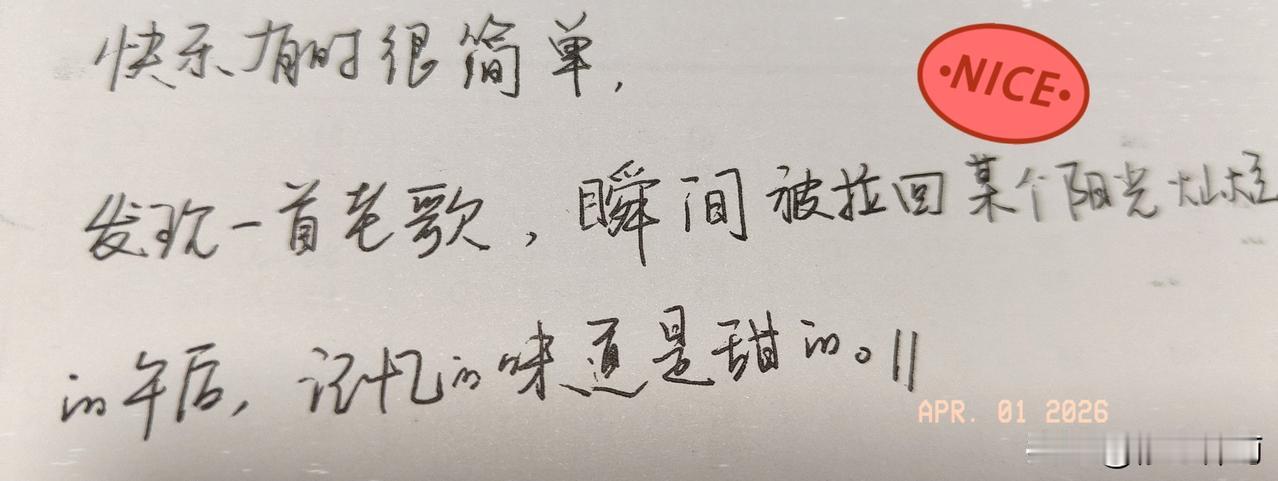 快乐有时很简单,
·NICE·
发现一首老歌,瞬间被拉回某个阳光灿烂
的午后,记忆的味道是甜的。||
APR. 01 2026